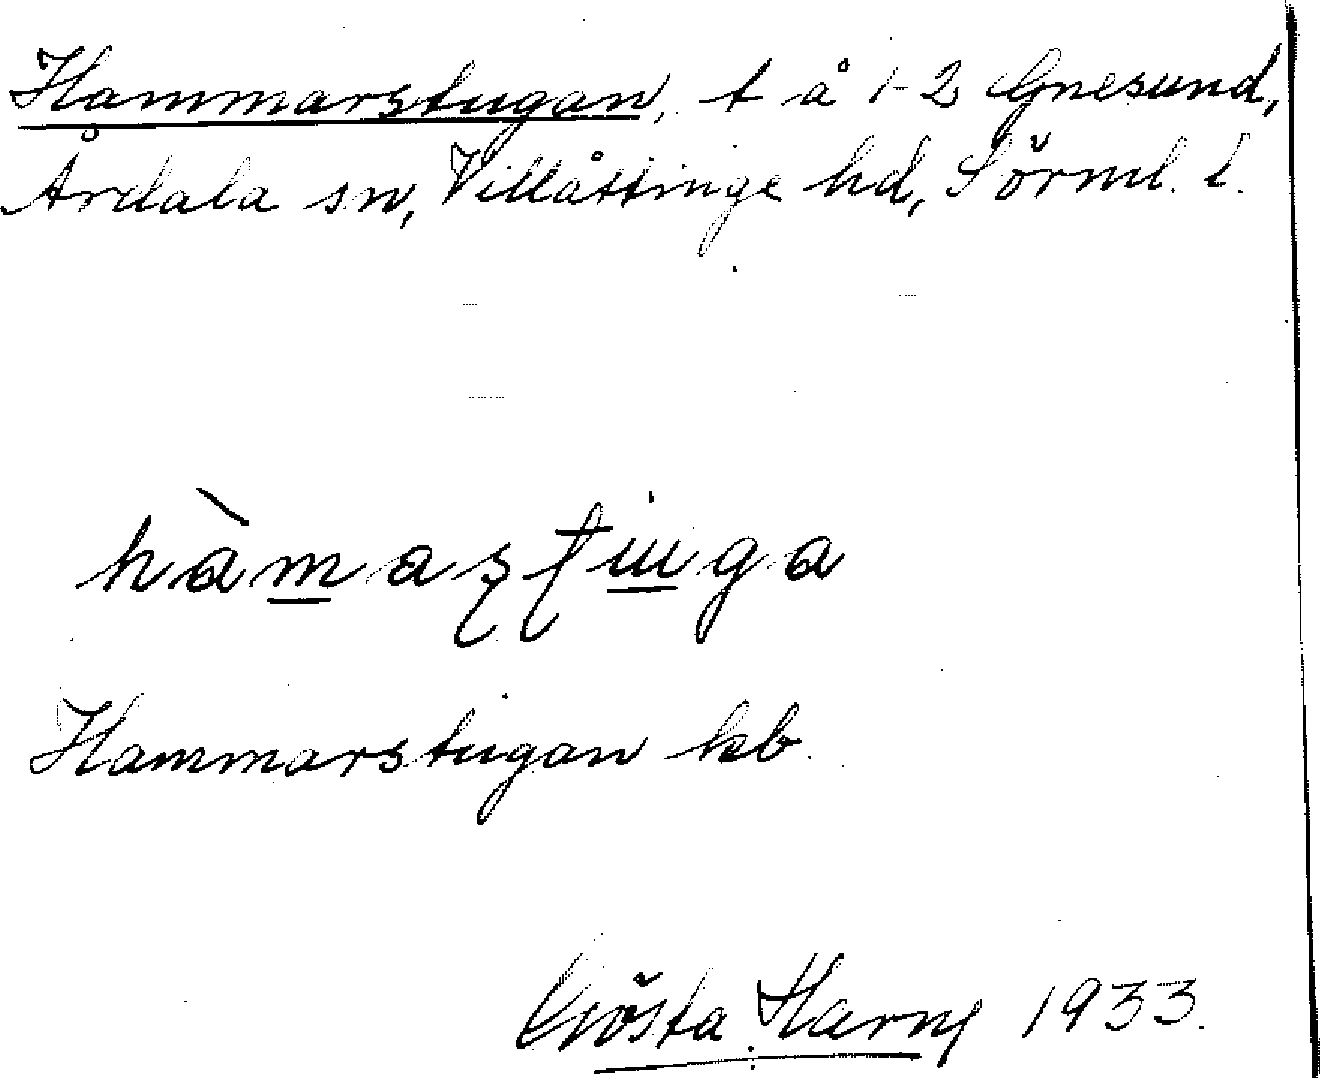 Hammarstugan, t å 1-2 Gnesund,
Årdala sn, Villåttinge hd, Sörml. l.
hàmaʂʈɯga
Hammarstugan kb.
Gösta Harny 1933.